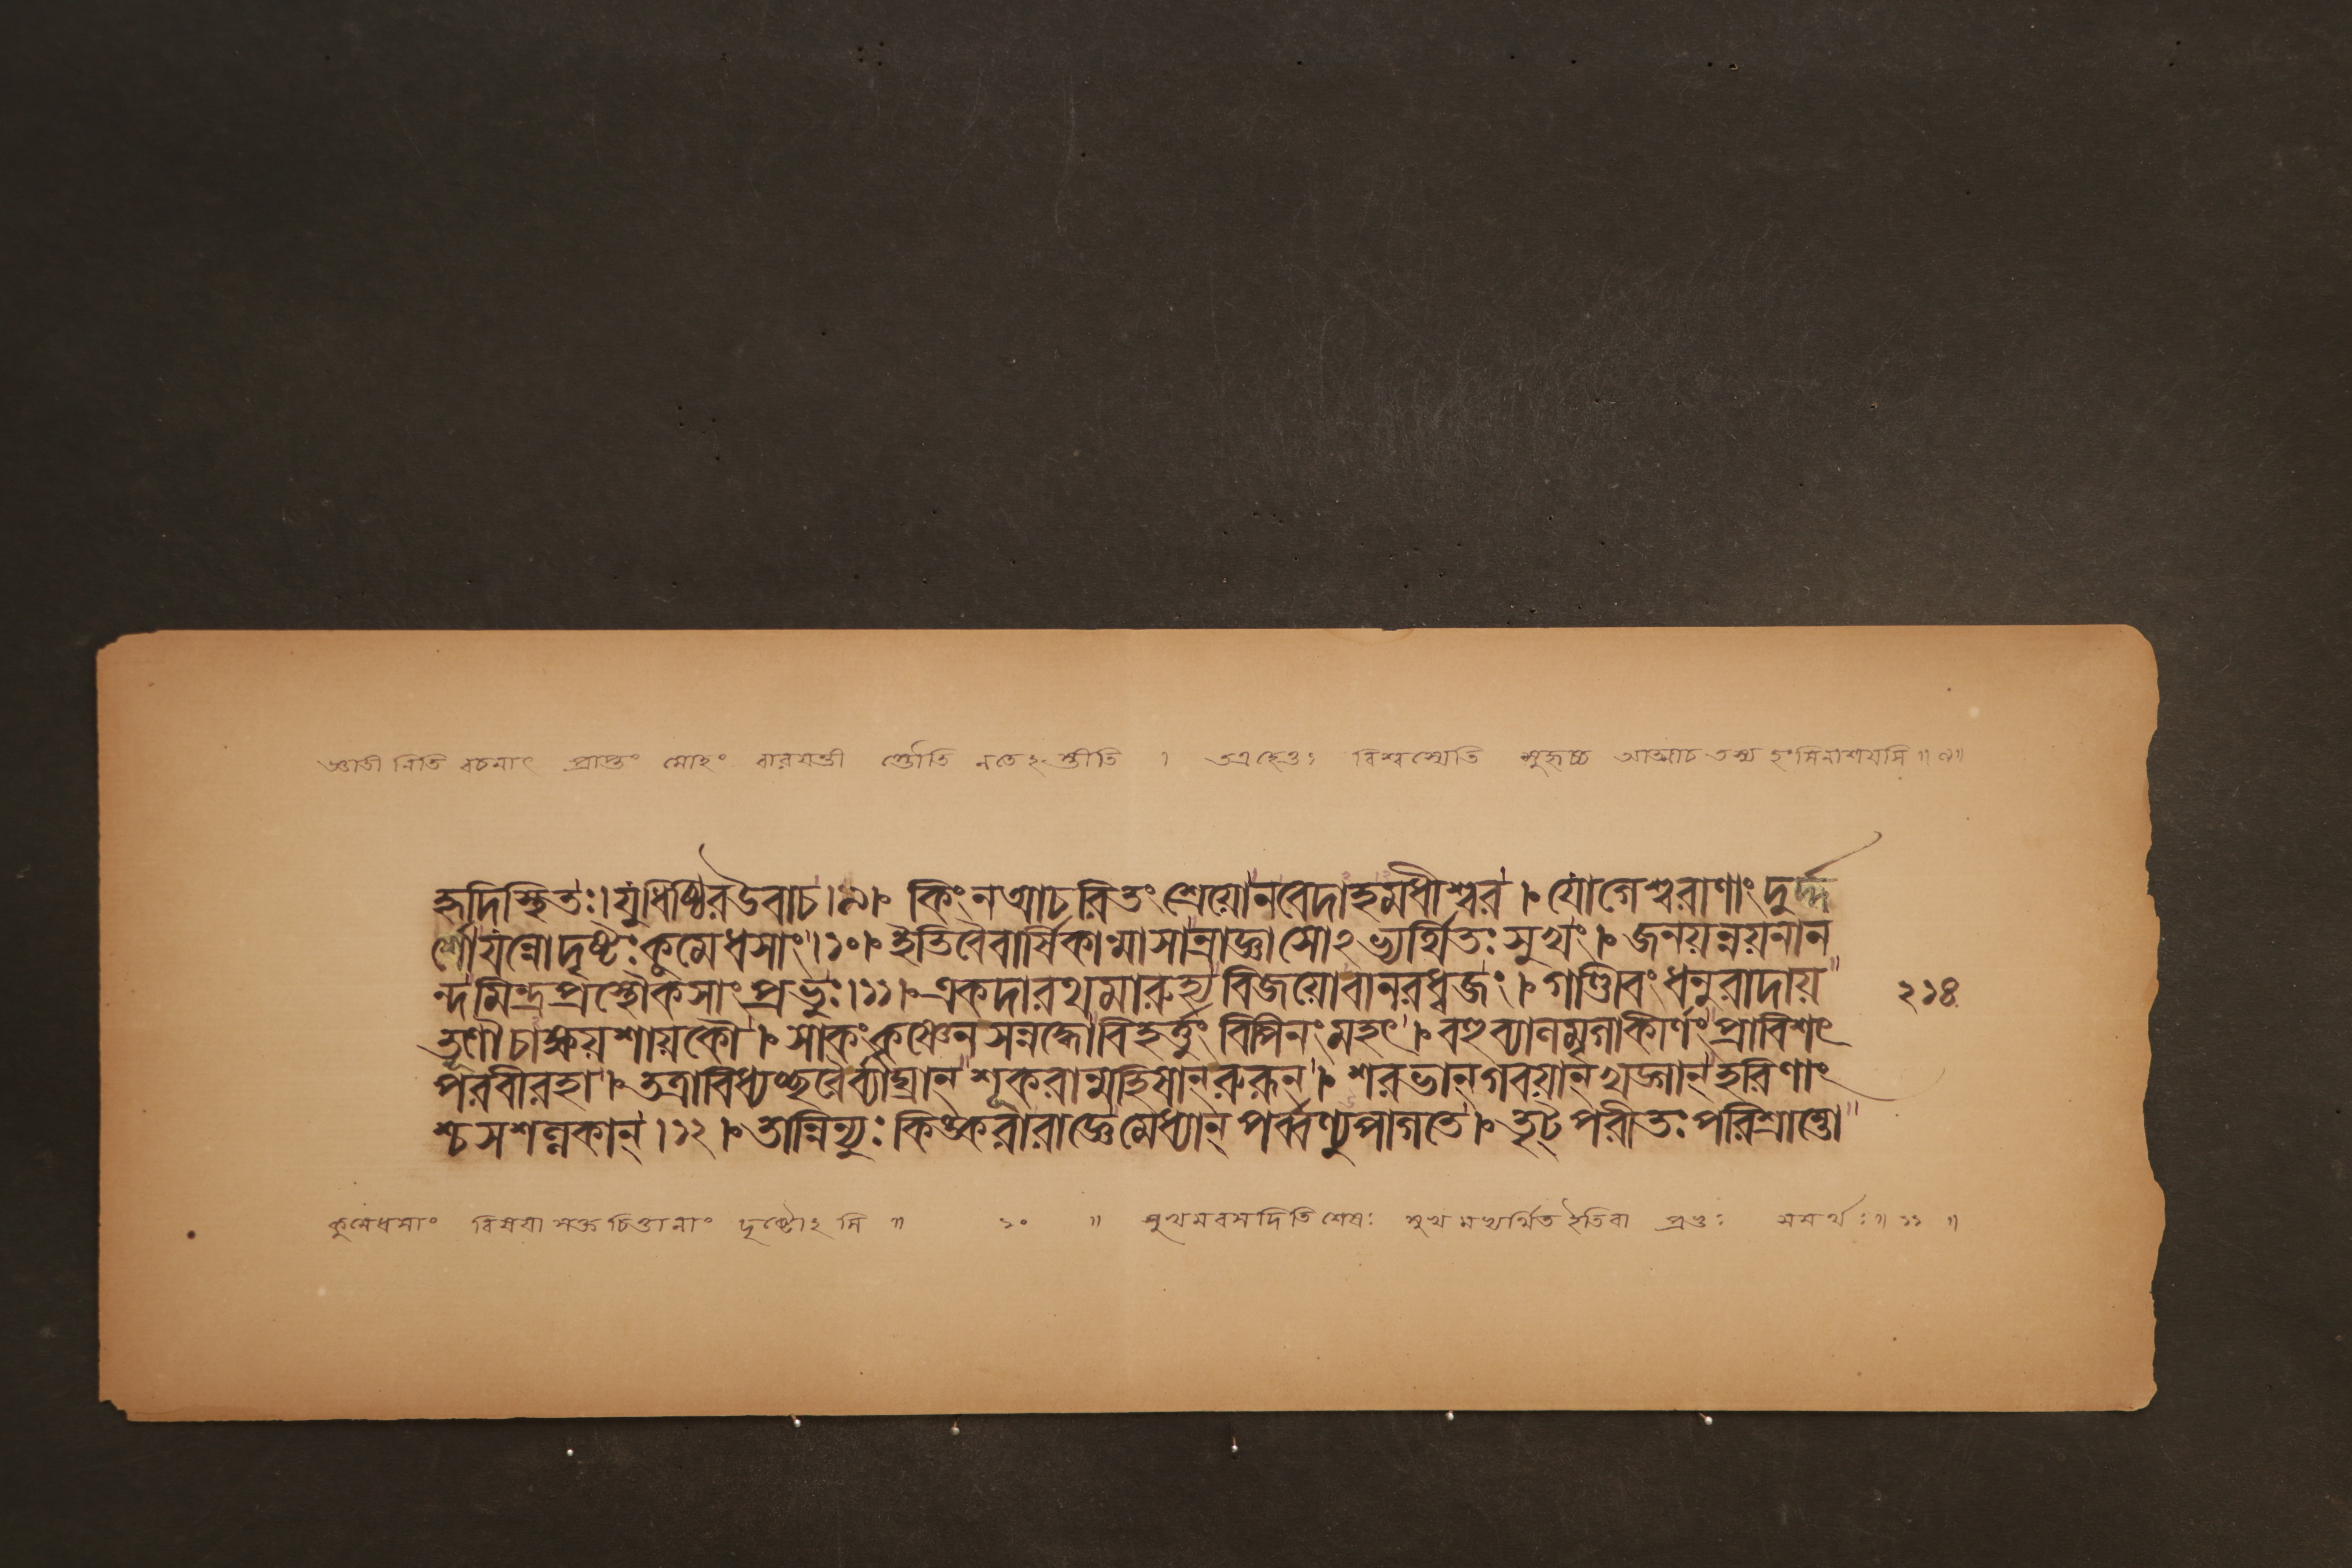 জ্ঞাতীনিতি বচনাৎ প্রাপ্তং মোহং বারয়ন্তী র্ত্তোতি নতেঽস্তীতি । তত্রহেতুঃ বিশ্বস্যেতি সুহৃচ্চ আত্মাচ তস্য হংসিনাশয়সি ॥ ৯ ॥
হৃদিস্থিতঃ। যুধিষ্ঠিরউবাচ।৯। কিংনআচরিতং শ্রেয়োনবেদাহমধীশ্বর । যোগেশ্বরাণাং দুর্দ্দ
র্শোযন্নোদৃষ্টঃকুমেধসাং।১০। ইতিবৈবার্ষিকান্মাসান্রাজ্ঞাসোঽভ্যর্থিতঃ সুখং । জনয়ন্নয়নান
ন্দমিন্দ্রপ্রস্থৌকসাং প্রভুঃ।১১। একদারথমারুহ্য বিজয়োবানরধ্বজঃ । গাণ্ডীবং ধনুরাদায়" ২১৪
তূণৌচাক্ষয়শায়কৌ । সাকংকৃষ্ণেনসন্নদ্ধোবিহর্ত্তুং বিপিনংমহৎ । বহুব্যালমৃগাকীর্ণং প্রাবিশৎ
পরবীরহা । তত্রাবিধ্যচ্ছরৈর্ব্যাঘ্রান্ শূকরান্মহিষান্রুরূন্ । শরভান্গবয়ান্ খড়্গান্ হরিণাং
শ্চসশল্লকান্ ।১২। তান্নিন্যুঃ কিঙ্করারাজ্ঞেমেধ্যান্ পর্ব্বণ্যুপাগতে । তৃট্ পরীতঃ পরিশ্রান্তো"
কুমেধসাং বিষয়াসক্তচিত্তানাং দৃষ্টোঽসি ॥ ১০ ॥ সুখমবসদিতিশেষঃ সুখমভ্যর্থিতইতিবা প্রভুঃ সমর্থঃ॥ ১১ ॥